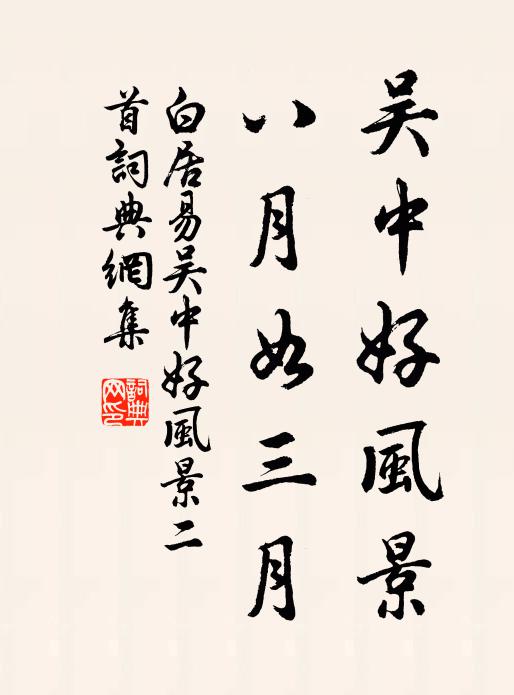 吴中好風景
八月如三月
白居易吴中好風景二
首詞典網集
詞典
网印